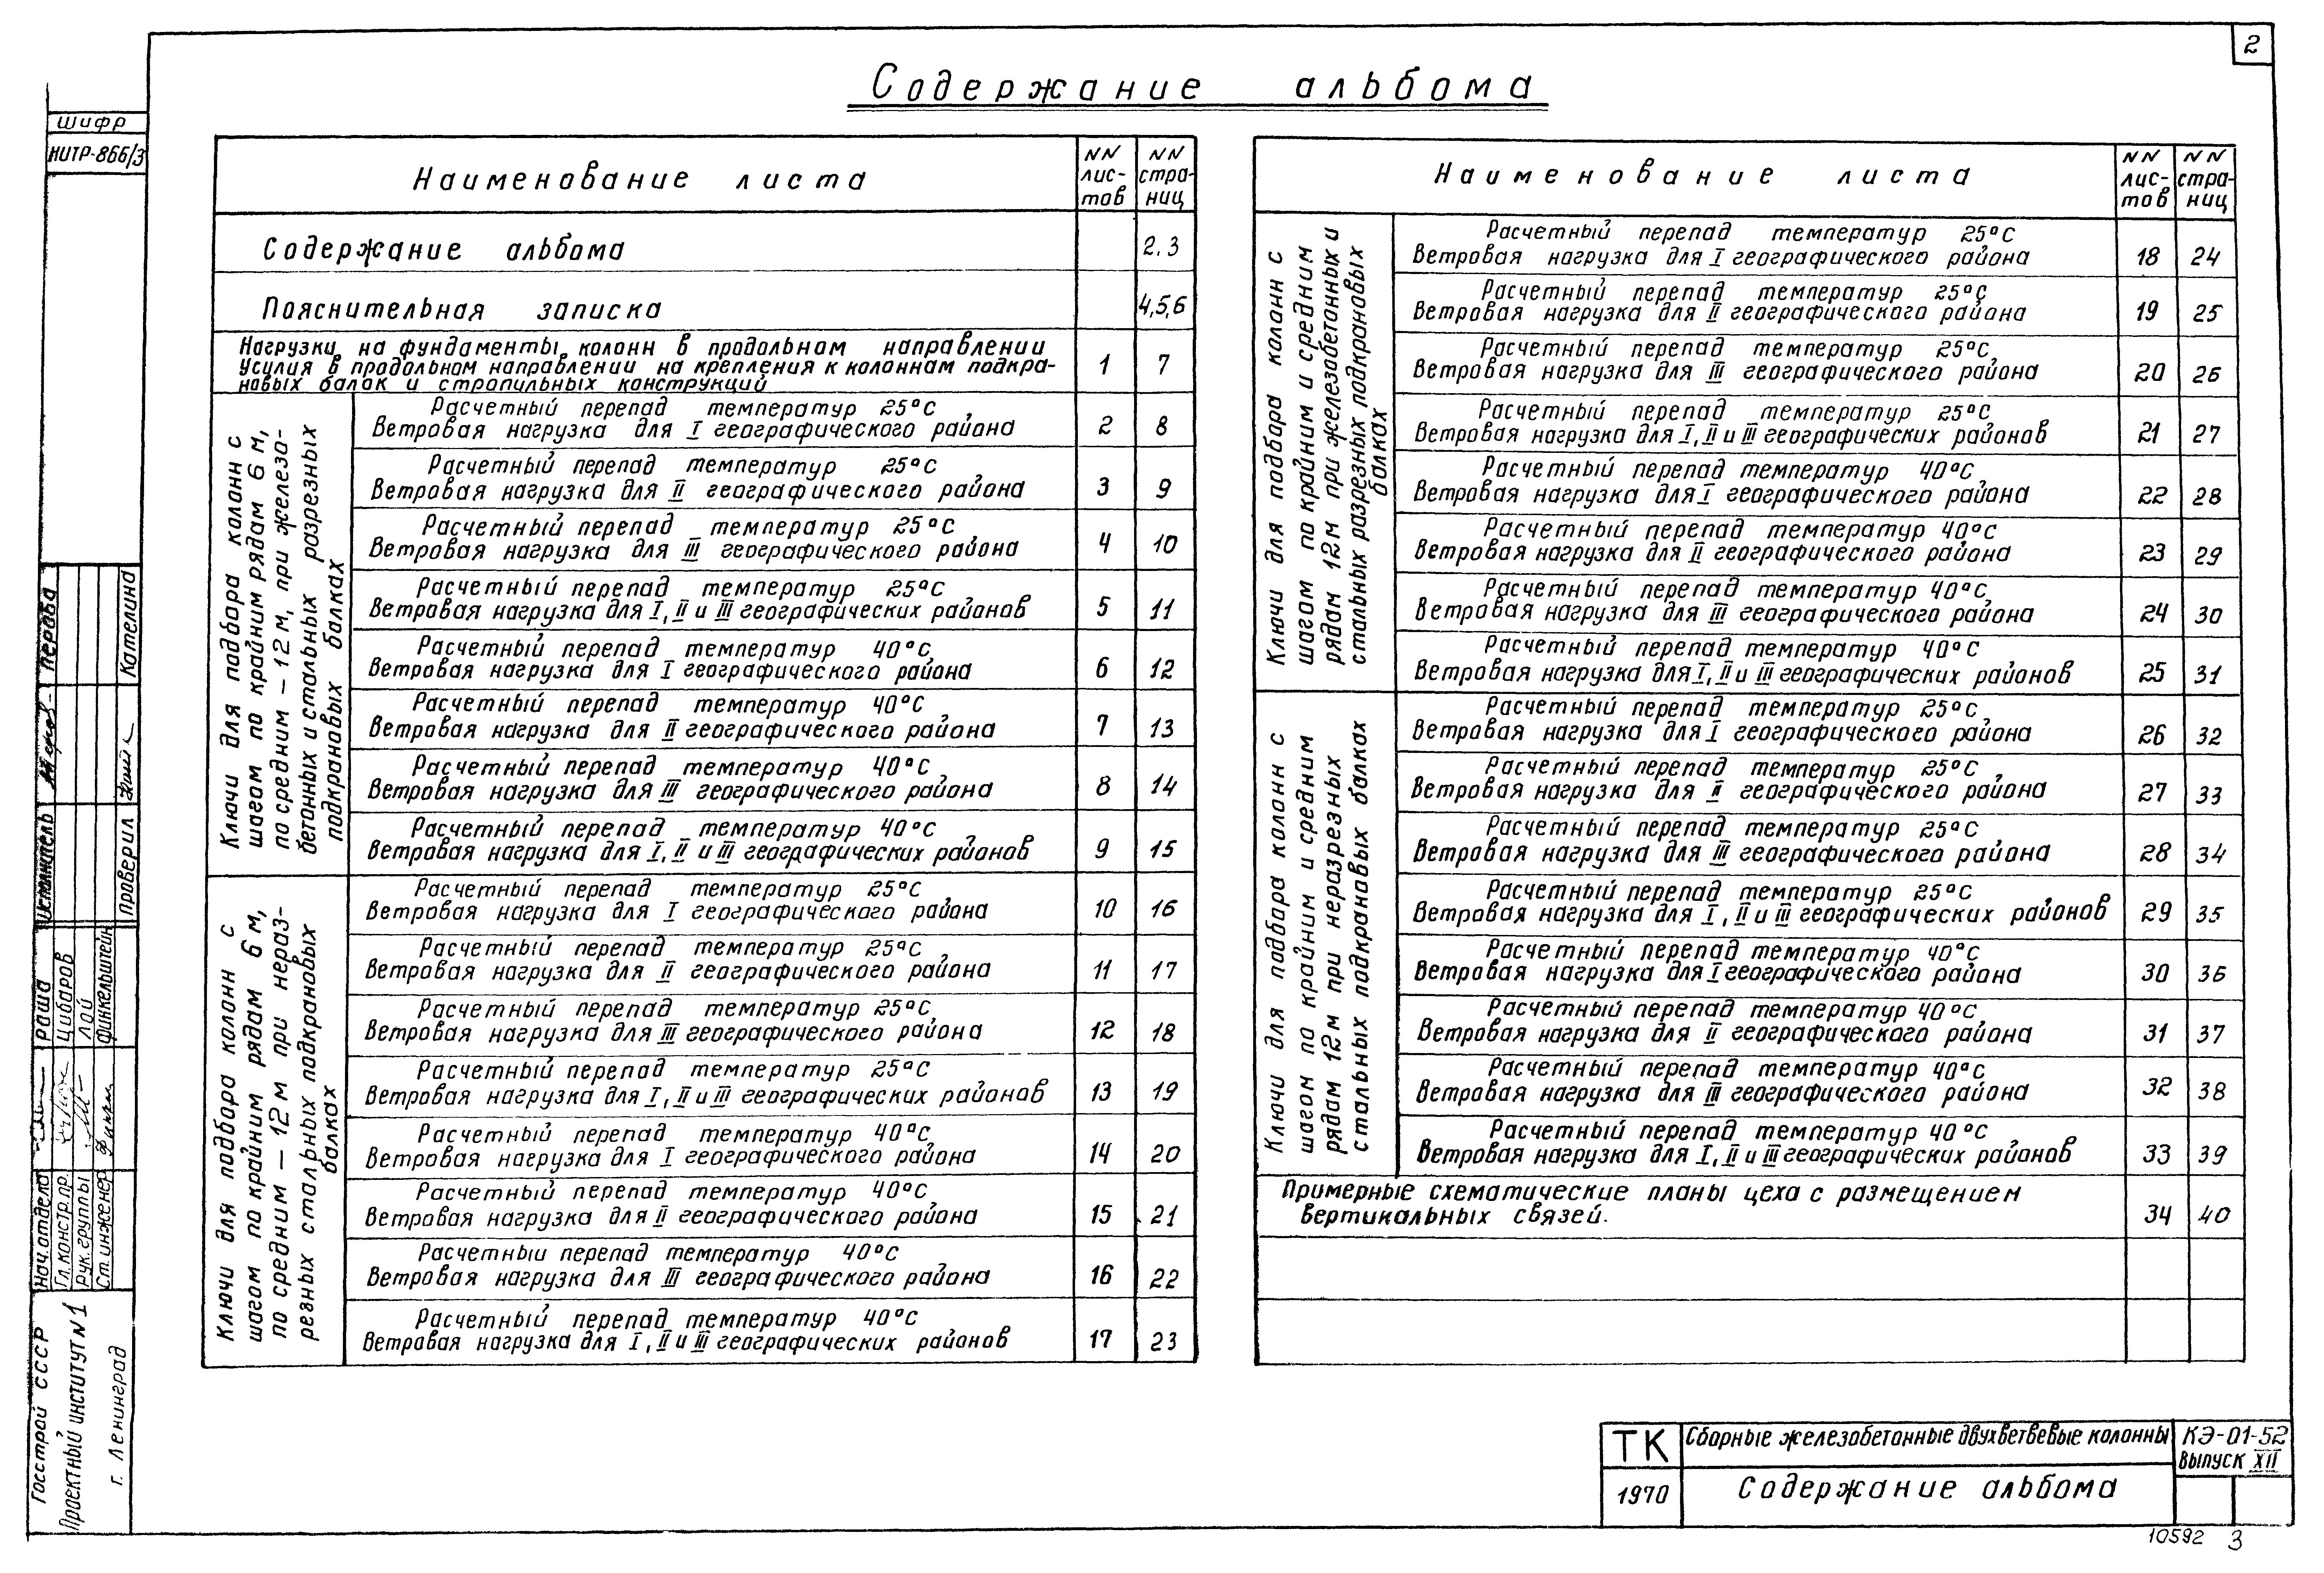 2
Содержание альбома
шифр
НИТР-866/3
Наименование листа
NN листов
NN страниц
Содержание альбома 2,3
Пояснительная записка 4,5,6
Нагрузки на фундаменты колонн в продольном направлении
Усилия в продольном направлении на крепления к колоннам подкра-
новых балок и стропильных конструкций 1 7
Ключи для подбора колонн с
шагам по крайним рядам 6 м,
по средним – 12 м, при железо-
бетонных и стальных разрезных
подкрановых балках
Расчетный перепад температур 25°С
Ветровая нагрузка для I географического района 2 8
Расчетный перепад температур 25°С
Ветровая нагрузка для II географического района 3 9
Расчетный перепад температур 25°С
Ветровая нагрузка для III географического района 4 10
Расчетный перепад температур 25°С
Ветровая нагрузка для I, II и III географических районов 5 11
Расчетный перепад температур 40°С
Ветровая нагрузка для I географического района 6 12
Расчетный перепад температур 40°С
Ветровая нагрузка для II географического района 7 13
Расчетный перепад температур 40°С
Ветровая нагрузка для III географического района 8 14
Расчетный перепад температур 40°С
Ветровая нагрузка для I, II и III географических районов 9 15
Ключи для подбора колонн с
шагом по крайним рядам 6 м,
по средним – 12 м при нераз-
резных стальных подкрановых
балках
Расчетный перепад температур 25°С
Ветровая нагрузка для I географического района 10 16
Расчетный перепад температур 25°С
Ветровая нагрузка для II географического района 11 17
Расчетный перепад температур 25°С
Ветровая нагрузка для III географического района 12 18
Расчетный перепад температур 25°С
Ветровая нагрузка для I, II и III географических районов 13 19
Расчетный перепад температур 40°С
Ветровая нагрузка для I географического района 14 20
Расчетный перепад температур 40°С
Ветровая нагрузка для II географического района 15 21
Расчетный перепад температур 40°С
Ветровая нагрузка для III географического района 16 22
Расчетный перепад температур 40°С
Ветровая нагрузка для I, II и III географических районов 17 23
Наименование листа
NN листов
NN страниц
Ключи для подбора колонн с
шагам по крайним и средним
рядам 12 м при железобетонных и
стальных разрезных подкрановых
балках
Расчетный перепад температур 25°С
Ветровая нагрузка для I географического района 18 24
Расчетный перепад температур 25°С
Ветровая нагрузка для II географического района 19 25
Расчетный перепад температур 25°С
Ветровая нагрузка для III географического района 20 26
Расчетный перепад температур 25°С
Ветровая нагрузка для I, II и III географических районов 21 27
Расчетный перепад температур 40°С
Ветровая нагрузка для I географического района 22 28
Расчетный перепад температур 40°С
Ветровая нагрузка для II географического района 23 29
Расчетный перепад температур 40°С
Ветровая нагрузка для III географического района 24 30
Расчетный перепад температур 40°С
Ветровая нагрузка для I, II и III географических районов 25 31
Ключи для подбора колонн с
шагом по крайним и средним
рядам 12 м при неразрезных
стальных подкрановых балках
Расчетный перепад температур 25°С
Ветровая нагрузка для I географического района 26 32
Расчетный перепад температур 25°С
Ветровая нагрузка для II географического района 27 33
Расчетный перепад температур 25°С
Ветровая нагрузка для III географического района 28 34
Расчетный перепад температур 25°С
Ветровая нагрузка для I, II и III географических районов 29 35
Расчетный перепад температур 40°С
Ветровая нагрузка для I географического района 30 36
Расчетный перепад температур 40°С
Ветровая нагрузка для II географического района 31 37
Расчетный перепад температур 40°С
Ветровая нагрузка для III географического района 32 38
Расчетный перепад температур 40°С
Ветровая нагрузка для I, II и III географических районов 33 39
Примерные схематические планы цеха с размещением
вертикальных связей. 34 40
Исполнитель Перова
Проверил Кателина
Нач.отдела Раша
Гл.констр.пр. Цибаров
Рук.группы Лой
Ст.инженер Финкельштейн
Госстрой СССР
Проектный институт N1
г. Ленинград
ТК
1970
Сборные железобетонные двухветвевые колонны
Содержание альбома
КЭ-01-52
Выпуск XII
10592 3